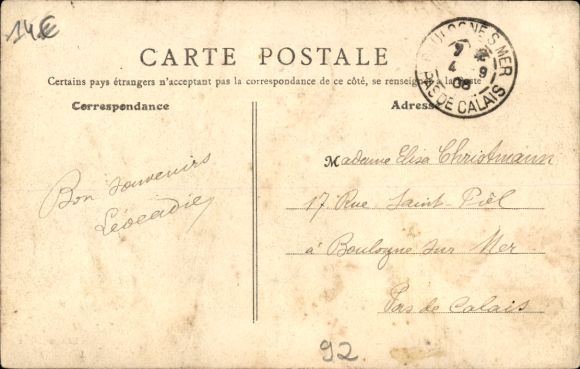 14 €
CARTE POSTALE
Certains pays étrangers n'acceptant pas la correspondance de ce côté, se renseigner à la Poste
Correspondance
Adresse
BOULOGNE S MER
4 - 9
08
PAS DE CALAIS
Madame Elisa Christmann
17 Rue Saint-Piêl
à Boulogne sur Mer
Pas de Calais
Bon souvenirs
Léocadie
92